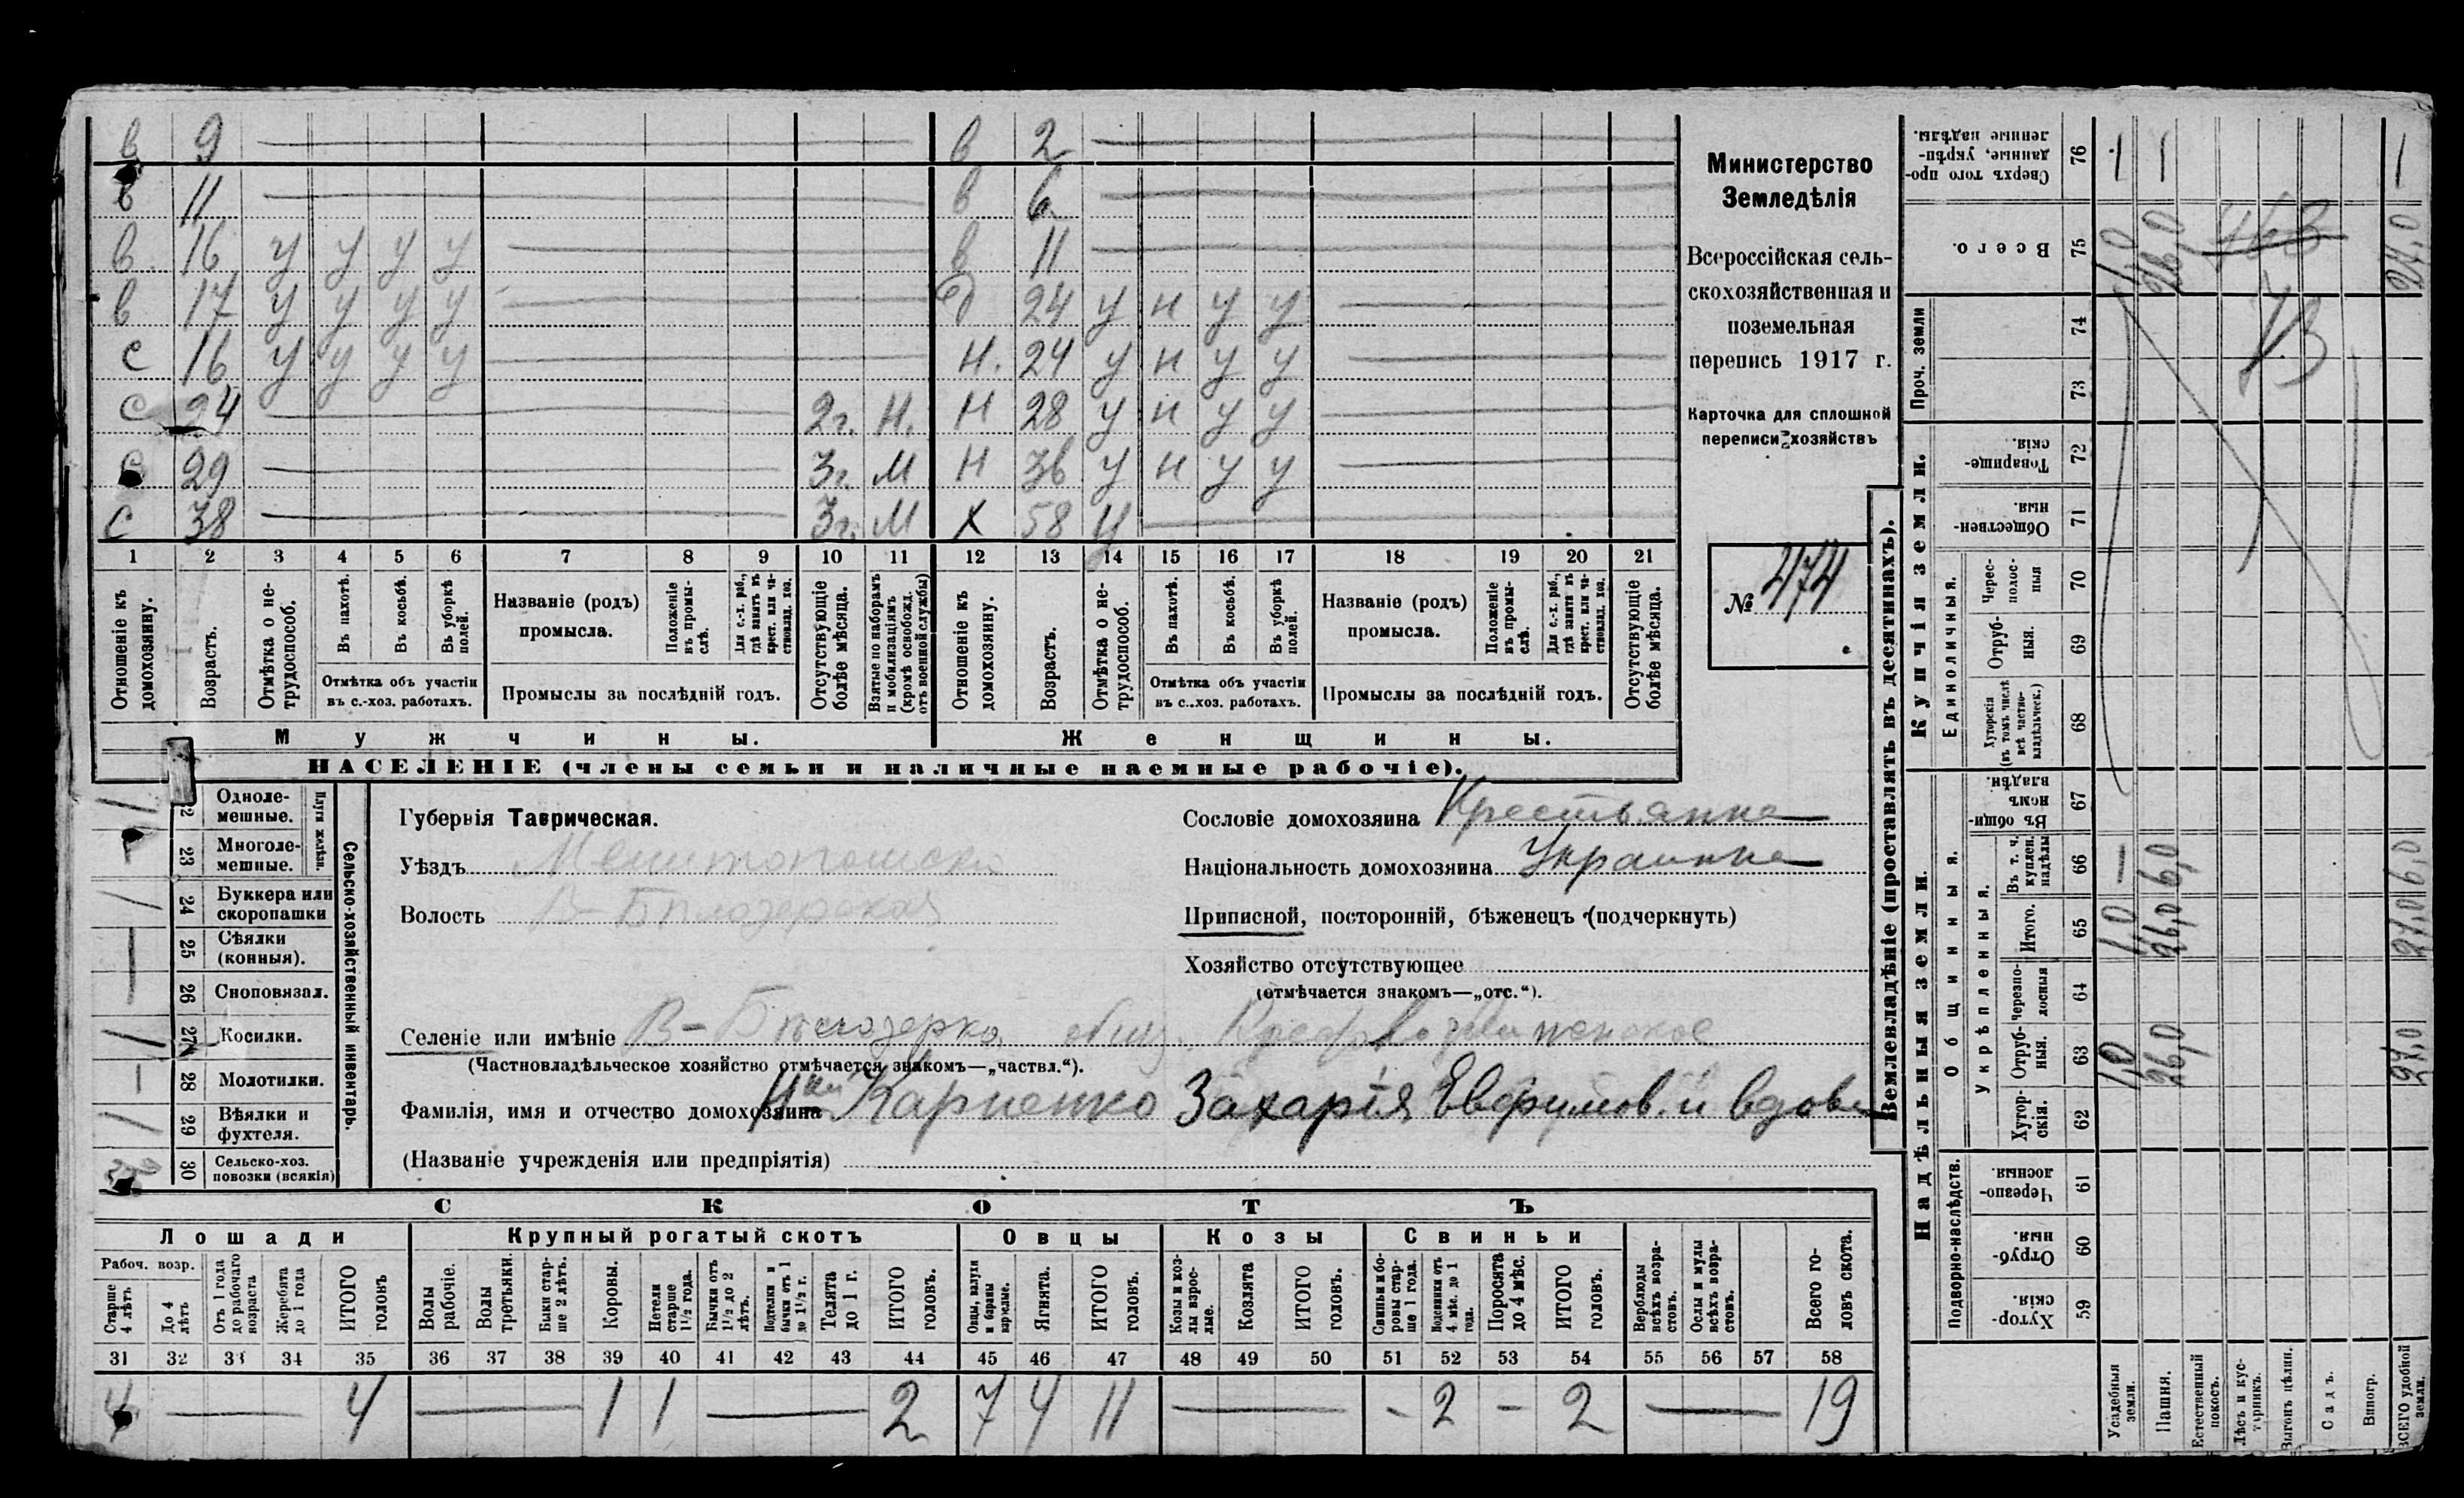 в 9 — в 2 —
в 11 — в 6 —
в 16 у у у у — в 11 —
в 17 у у у у — д 24 у н у у —
с 16 у у у у — н. 24 у н у у —
с 24 — 2 г. Н. н 28 у н у у —
с 29 — 3 г. М н 36 у н у у —
с 38 — 3 г. М х 58 у —
1 2 3 4 5 6 7 8 9 10 11 12 13 14 15 16 17 18 19 20 21
Отношеніе къ домохозяину.
Возрастъ.
Отмѣтка о не-трудоспособ.
Въ пахотѣ.
Въ косьбѣ.
Въ уборкѣ полей.
Отмѣтка объ участіи
въ с.-хоз. работахъ.
Названіе (родъ)
промысла.
Положеніе въ промы-слѣ.
Для с.-х. раб., гдѣ занятъ въ крест. или ча-стновлад. хоз.
Промыслы за послѣдній годъ.
Отсутствующіе болѣе мѣсяца.
Взятые по наборамъ и мобилизаціямъ (кромѣ освобожд. отъ военной службы)
Отношеніе къ домохозяину.
Возрастъ.
Отмѣтка о не-трудоспособ.
Въ пахотѣ.
Въ косьбѣ.
Въ уборкѣ полей.
Отмѣтка объ участіи
въ с.-хоз. работахъ.
Названіе (родъ)
промысла.
Положеніе въ промы-слѣ.
Для с.-х. раб., гдѣ занята въ крест. или ча-стновлад. хоз.
Промыслы за послѣдній годъ.
Отсутствующіе болѣе мѣсяца.
Мужчины. Женщины.
НАСЕЛЕНІЕ (члены семьи и наличные наемные рабочіе).
Министерство
Земледѣлія
Всероссійская сель-
скохозяйственная и
поземельная
перепись 1917 г.
Карточка для сплошной
переписи хозяйствъ
№ 474
Сельско-хозяйственный инвентарь.
Плуги желѣзн.
22 Одноле-мешные.
23 Многоле-мешные.
24 Буккера или скоропашки
25 Сѣялки (конныя).
26 Сноповязал.
27 Косилки.
28 Молотилки.
29 Вѣялки и фухтеля.
30 Сельско-хоз. повозки (всякія)
Губернія Таврическая.
Уѣздъ Мелитопольскій
Волость В-Бѣлозерская
Сословіе домохозяина Крестьянка
Національность домохозяина Украинка
Приписной, посторонній, бѣженецъ (подчеркнуть)
Хозяйство отсутствующее
(отмѣчается знакомъ—„отс.“).
Селеніе или имѣніе В-Бѣлозерка общ. Крестовоздвиженское
(Частновладѣльческое хозяйство отмѣчается знакомъ—„частвл.“).
Фамилія, имя и отчество домохозяина Н-ки Карпенко Захарія Евфимов. и вдова
(Названіе учрежденія или предпріятія)
СКОТЪ
Лошади Крупный рогатый скотъ Овцы Козы Свиньи
Рабоч. возр.
Старше 4 лѣтъ
До 4 лѣтъ
Отъ 1 года до рабочаго возраста
Жеребята до 1 года
ИТОГО головъ
Волы рабочіе.
Волы третьяки.
Быки стар-ше 2 лѣтъ.
Коровы.
Нетели старше 1½ года.
Бычки отъ 1½ до 2 лѣтъ.
Подтелки и бычки отъ 1 до 1½ г.
Телята до 1 г.
ИТОГО головъ.
Овцы, валухи и бараны взрослые.
Ягнята.
ИТОГО головъ.
Козы и коз-лы взрос-лые.
Козлята
ИТОГО головъ.
Свиньи и бо-ровы стар-ше 1 года.
Подсвинки отъ 4 мѣс. до 1 года.
Поросята до 4 мѣс.
ИТОГО головъ.
Верблюды всѣхъ возра-стовъ.
Ослы и мулы всѣхъ возра-стовъ.
Всего го-ловъ скота.
31 32 33 34 35 36 37 38 39 40 41 42 43 44 45 46 47 48 49 50 51 52 53 54 55 56 57 58
4 — 4 — 1 1 — 2 7 4 11 — - 2 - 2 — 19
Землевладѣніе (проставлять въ десятинахъ).
Надѣльныя земли. Купчія земли.
Подворно-наслѣдств.
Общинныя.
Укрѣпленныя.
Единоличныя.
Проч. земли
Хутор-скія. 59
Отруб-ныя 60
Черезпо-лосныя. 61
Хутор-скія. 62
Отруб-ныя. 63
Черезпо-лосныя 64
Итого. 65
Въ т. ч. куплен. надѣлы 66
Въ общин-номъ владѣн. 67
Хуторскія (въ томъ числѣ всѣ частно-владѣльческ.) 68
Отруб-ныя. 69
Черес-полос-ныя 70
Обществен-ныя. 71
Товарище-скія. 72
73
74
Всего. 75
Сверхъ того про-данные, укрѣп-ленные надѣлы. 76
Усадебныя земли. 1,0 1,0 — 1,0
Пашня. 26,0 26,0 6,0 26,0
Естественный покосъ.
Лѣсъ и кус-тарникъ.
Выгонъ цѣлин.
Садъ.
Виногр.
ВСЕГО удобной земли. 27,0 27,0 6,0 27,0
463
73